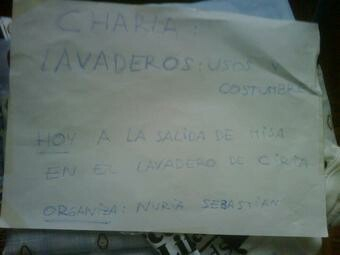 CHARLA:
LAVADEROS: USOS Y
COSTUMBRE
HOY A LA SALIDA DE MISA
EN EL LAVADERO DE CIRIA
ORGANIZA: NURIA SEBASTIAN